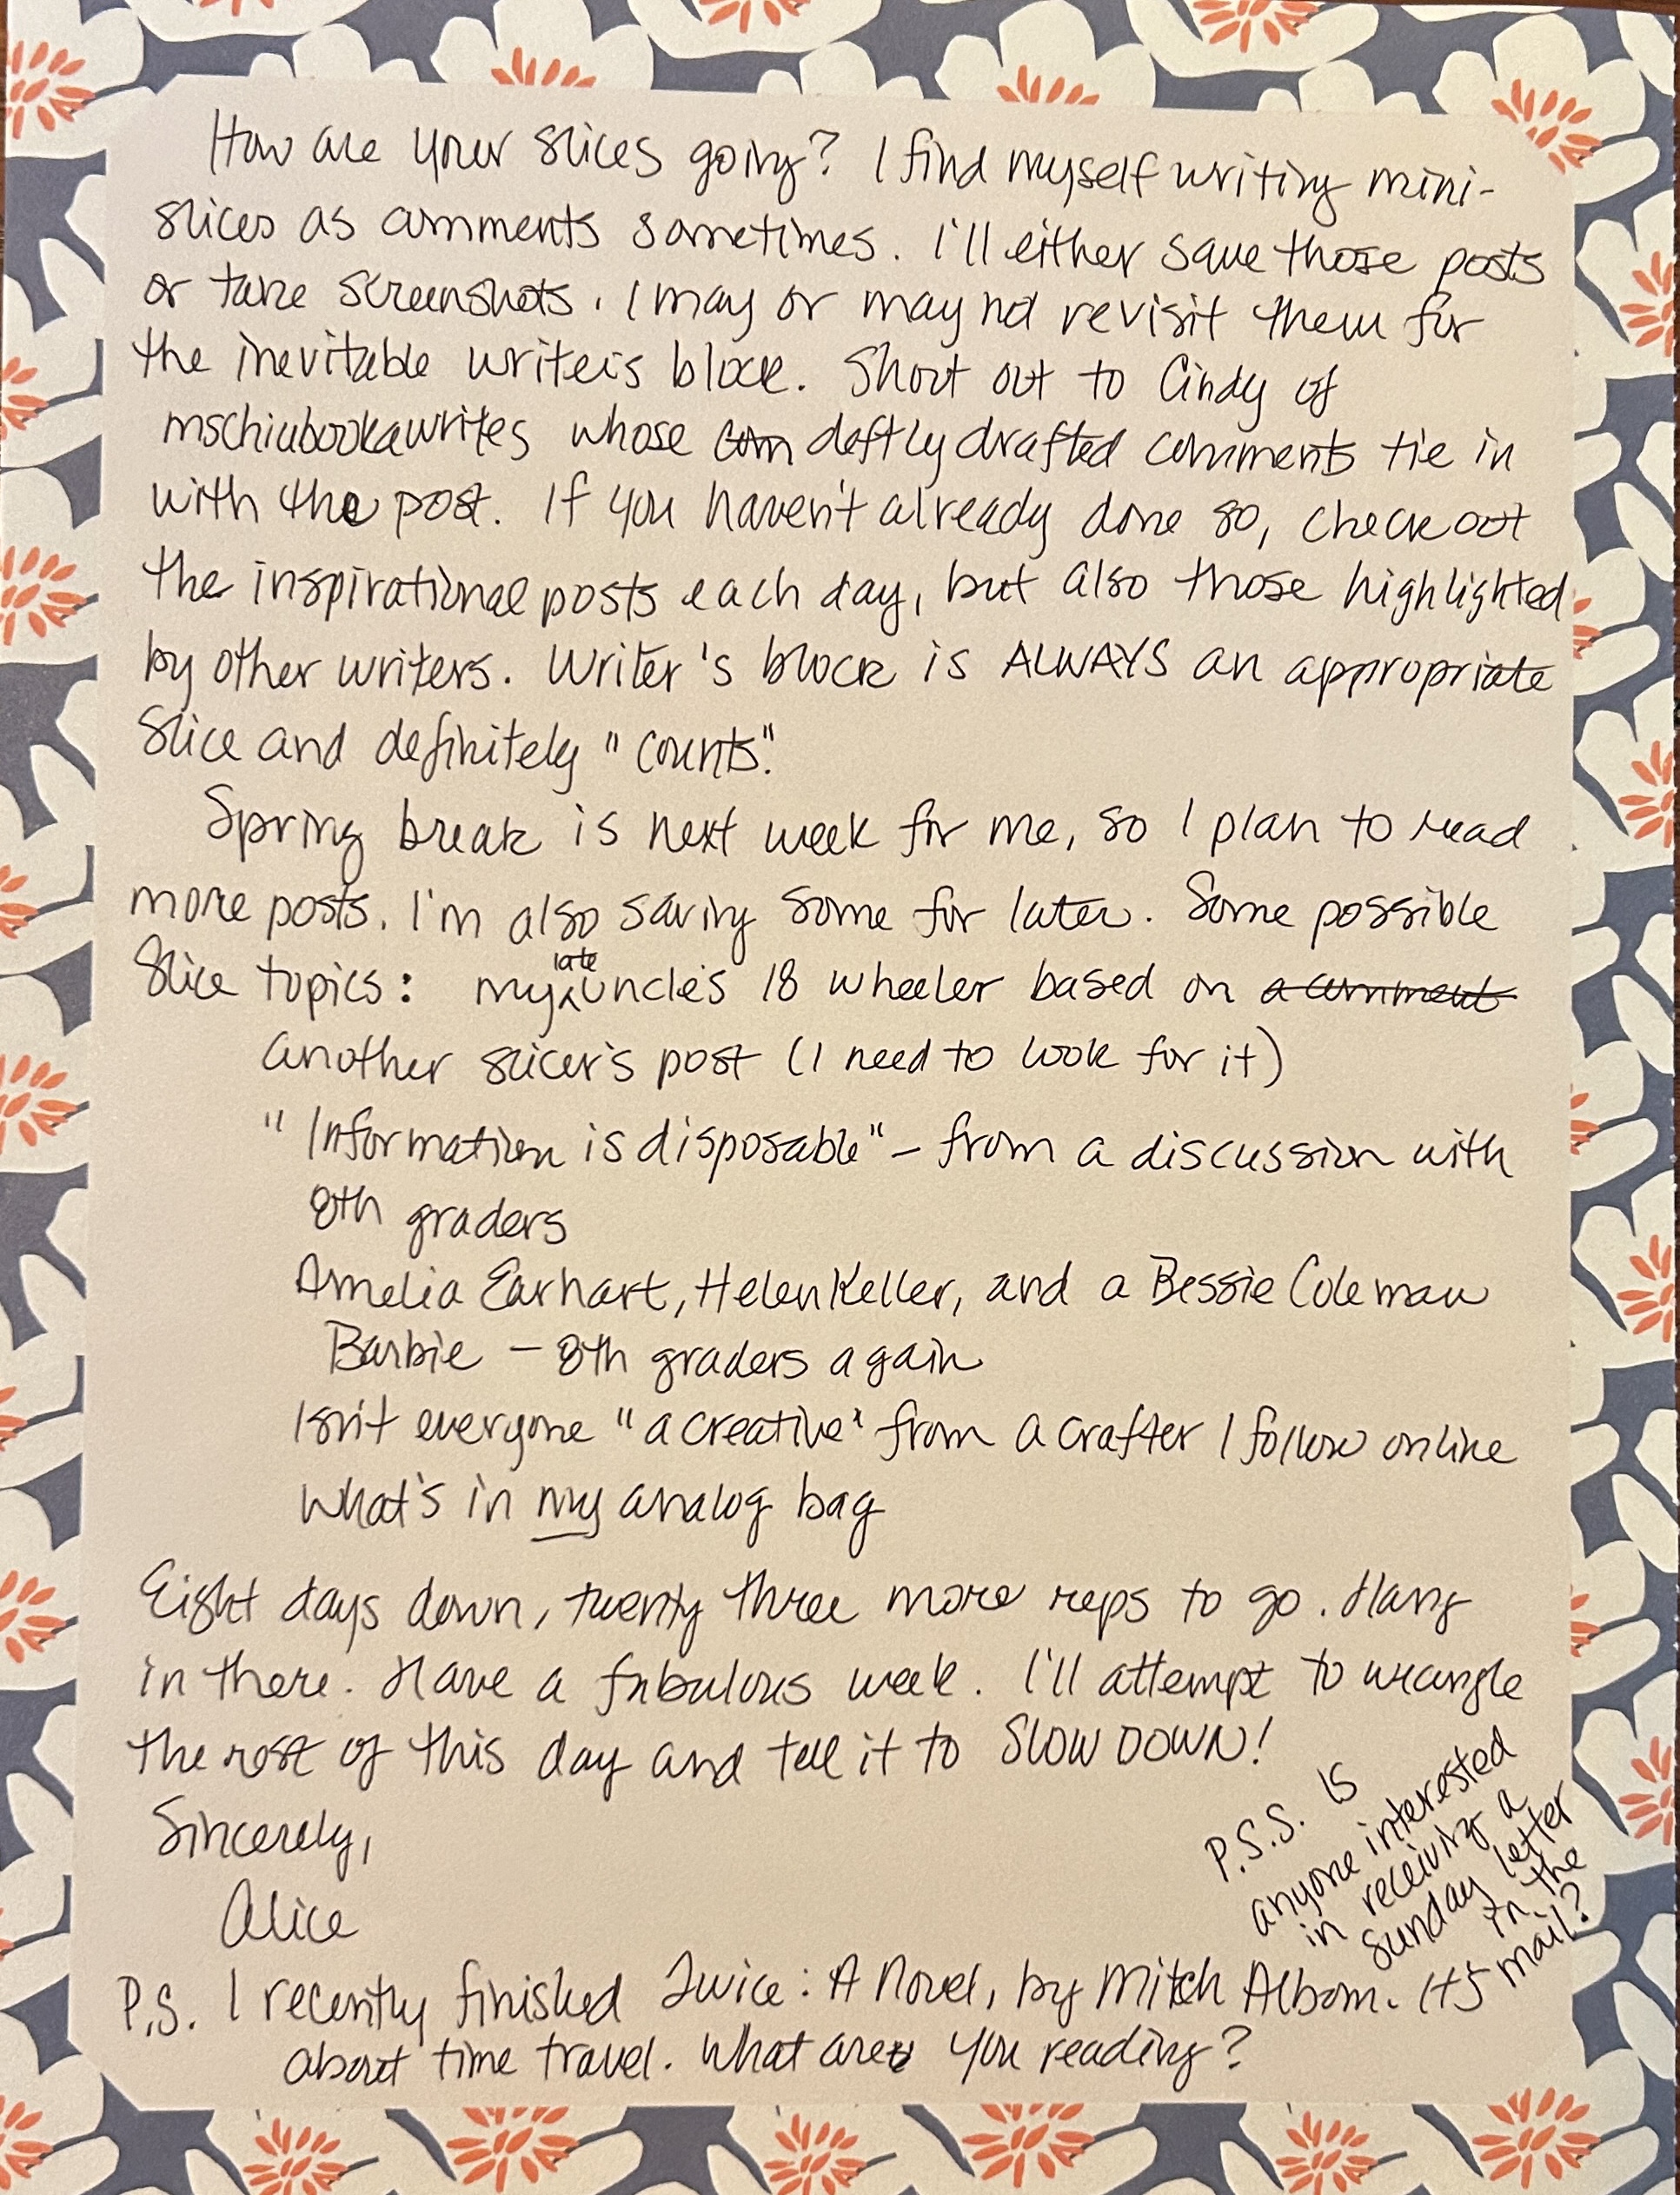 How are your slices going? I find myself writing mini-
slices as comments sometimes. I'll either save those posts
or take screenshots. I may or may not revisit them for
the inevitable writer's block. Shout out to Cindy of
mschiubookawrites whose com deftly drafted comments tie in
with the post. If you haven't already done so, check out
the inspirational posts each day, but also those highlighted
by other writers. Writer's block is ALWAYS an appropriate
slice and definitely "counts".
Spring break is next week for me, so I plan to read
more posts. I'm also saving some for later. Some possible
slice topics: my late uncle's 18 wheeler based on a comment
another slicer's post (I need to look for it)
"Information is disposable" - from a discussion with
8th graders
Amelia Earhart, Helen Keller, and a Bessie Coleman
Barbie - 8th graders again
Isn't everyone "a creative" from a crafter I follow online
What's in my analog bag
Eight days down, twenty three more reps to go. Hang
in there. Have a fabulous week. I'll attempt to wrangle
the rest of this day and tell it to SLOW DOWN!
Sincerely,
Alice
P.S. I recently finished Twice: A Novel, by Mitch Albom. It's
about time travel. What are you reading?
P.S.S. Is
anyone interested
in receiving a
Sunday letter
in the
mail?